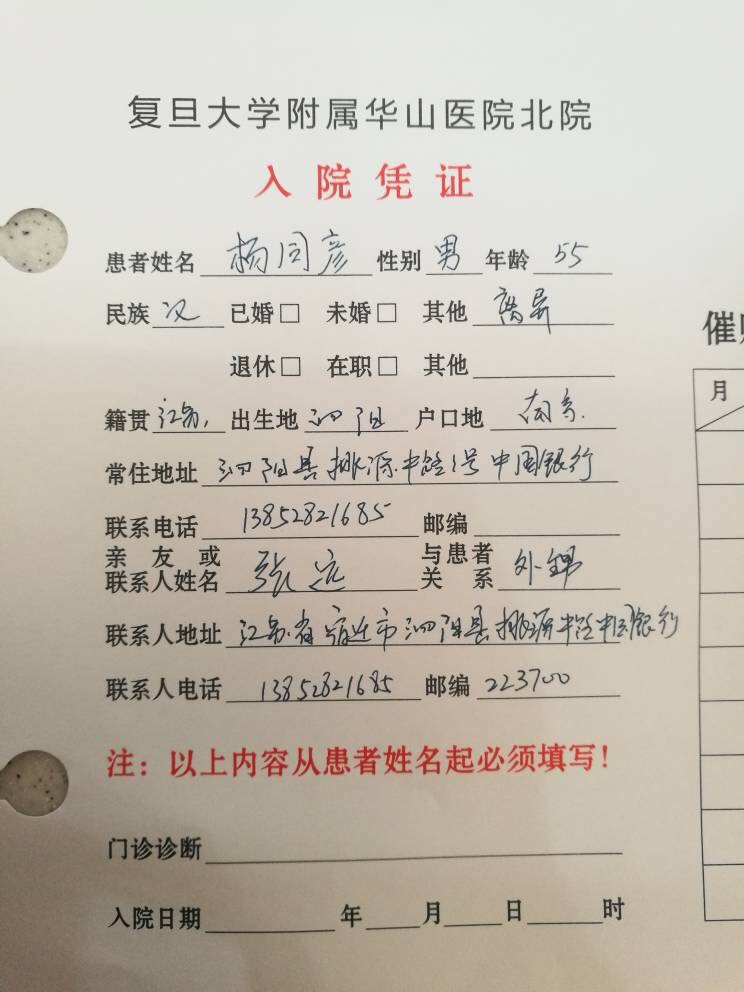 复旦大学附属华山医院北院
入院凭证
患者姓名 杨同彦 性别 男 年龄 55
民族 汉 已婚□ 未婚□ 其他 离异
退休□ 在职□ 其他
籍贯 江苏 出生地 泗阳 户口地 南京
常住地址 泗阳县桃源中路1号中国银行
联系电话 13852821685 邮编
亲友或联系人姓名 张远 与患者关系 外甥
联系人地址 江苏省宿迁市泗阳县桃源中路中国银行
联系人电话 13852821685 邮编 223700
注：以上内容从患者姓名起必须填写！
门诊诊断
入院日期 年 月 日 时
月